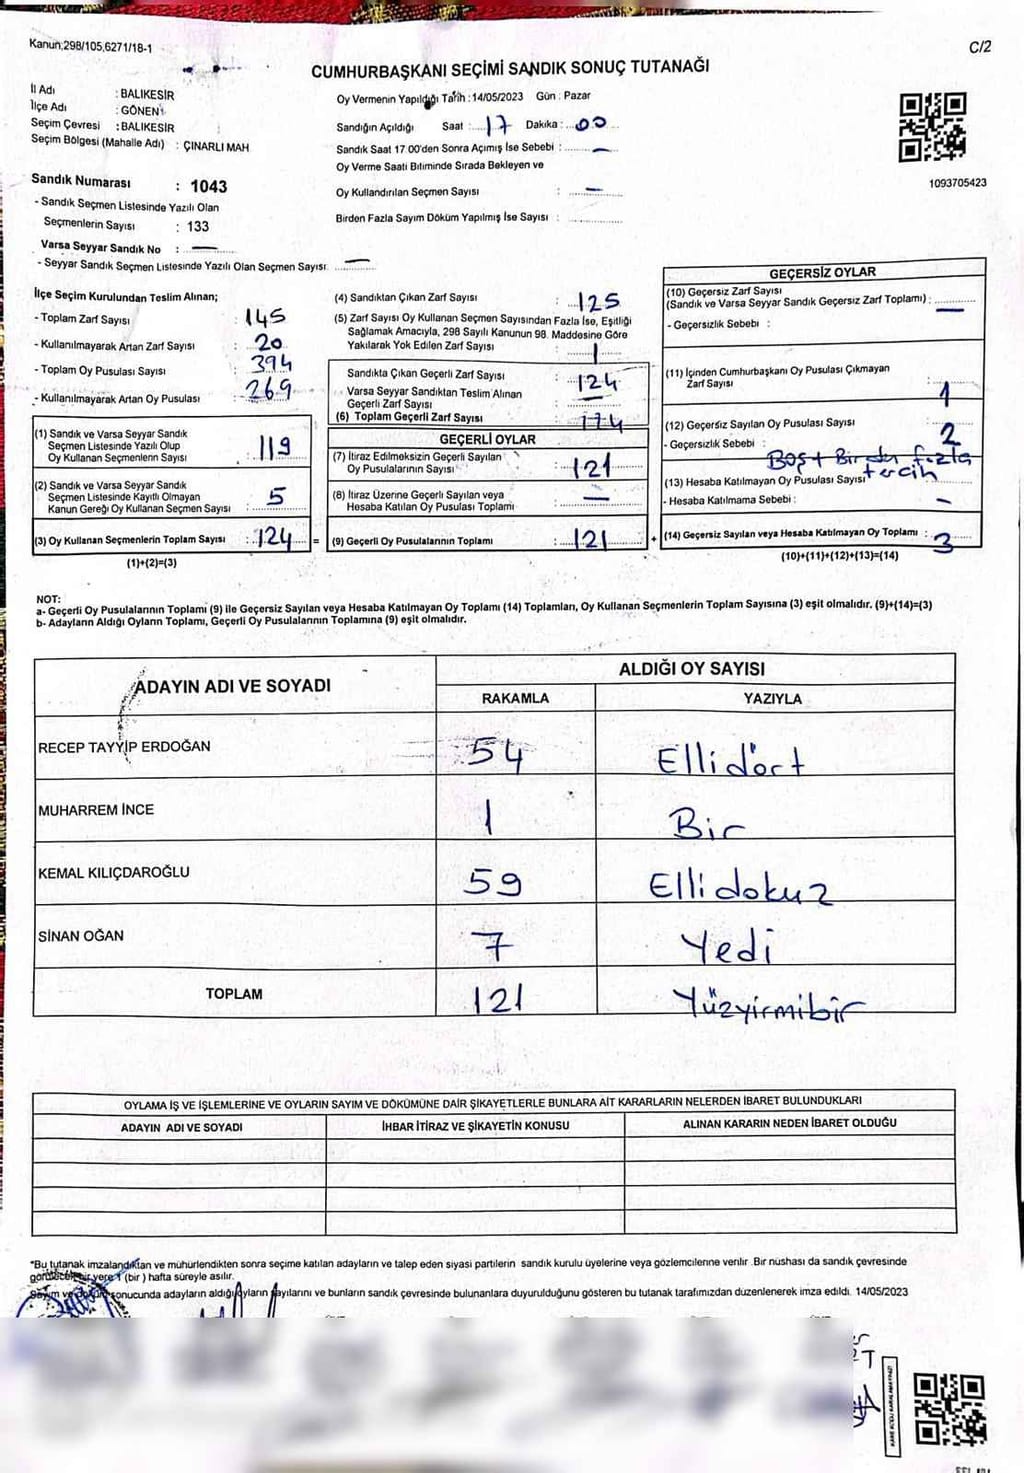 Kanun;298/105,6271/18-1
C/2
CUMHURBAŞKANI SEÇİMİ SANDIK SONUÇ TUTANAĞI
İl Adı : BALIKESİR
İlçe Adı : GÖNEN
Seçim Çevresi : BALIKESİR
Seçim Bölgesi (Mahalle Adı) : ÇINARLI MAH
Oy Vermenin Yapıldığı Tarih : 14/05/2023 Gün : Pazar
Sandığın Açıldığı Saat : 17 Dakika : 00
Sandık Saat 17.00'den Sonra Açımış İse Sebebi : —
Oy Verme Saati Bitiminde Sırada Bekleyen ve
Oy Kullandırılan Seçmen Sayısı : —
Birden Fazla Sayım Döküm Yapılmış İse Sayısı :
1093705423
Sandık Numarası : 1043
- Sandık Seçmen Listesinde Yazılı Olan
Seçmenlerin Sayısı : 133
Varsa Seyyar Sandık No : —
- Seyyar Sandık Seçmen Listesinde Yazılı Olan Seçmen Sayısı: —
İlçe Seçim Kurulundan Teslim Alınan;
- Toplam Zarf Sayısı : 145
- Kullanılmayarak Artan Zarf Sayısı : 20
- Toplam Oy Pusulası Sayısı : 394
- Kullanılmayarak Artan Oy Pusulası : 269
(1) Sandık ve Varsa Seyyar Sandık
Seçmen Listesinde Yazılı Olup
Oy Kullanan Seçmenlerin Sayısı : 119
(2) Sandık ve Varsa Seyyar Sandık
Seçmen Listesinde Kayıtlı Olmayan
Kanun Gereği Oy Kullanan Seçmen Sayısı : 5
(3) Oy Kullanan Seçmenlerin Toplam Sayısı : 124 =
(1)+(2)=(3)
(4) Sandıktan Çıkan Zarf Sayısı : 125
(5) Zarf Sayısı Oy Kullanan Seçmen Sayısından Fazla İse, Eşitliği
Sağlamak Amacıyla, 298 Sayılı Kanunun 98. Maddesine Göre
Yakılarak Yok Edilen Zarf Sayısı : 1
Sandıkta Çıkan Geçerli Zarf Sayısı : 124
Varsa Seyyar Sandıktan Teslim Alınan
Geçerli Zarf Sayısı : —
(6) Toplam Geçerli Zarf Sayısı : 124
GEÇERLİ OYLAR
(7) İtiraz Edilmeksizin Geçerli Sayılan
Oy Pusulalarının Sayısı : 121
(8) İtiraz Üzerine Geçerli Sayılan veya
Hesaba Katılan Oy Pusulası Toplamı : —
(9) Geçerli Oy Pusulalarının Toplamı : 121 +
GEÇERSİZ OYLAR
(10) Geçersiz Zarf Sayısı
(Sandık ve Varsa Seyyar Sandık Geçersiz Zarf Toplamı) : —
- Geçersizlik Sebebi :
(11) İçinden Cumhurbaşkanı Oy Pusulası Çıkmayan
Zarf Sayısı : 1
(12) Geçersiz Sayılan Oy Pusulası Sayısı : 2
- Geçersizlik Sebebi : Boş + Birden fazla
tercih
(13) Hesaba Katılmayan Oy Pusulası Sayısı
- Hesaba Katılmama Sebebi : —
(14) Geçersiz Sayılan veya Hesaba Katılmayan Oy Toplamı : 3
(10)+(11)+(12)+(13)=(14)
NOT:
a- Geçerli Oy Pusulalarının Toplamı (9) ile Geçersiz Sayılan veya Hesaba Katılmayan Oy Toplamı (14) Toplamları, Oy Kullanan Seçmenlerin Toplam Sayısına (3) eşit olmalıdır. (9)+(14)=(3)
b- Adayların Aldığı Oyların Toplamı, Geçerli Oy Pusulalarının Toplamına (9) eşit olmalıdır.
ADAYIN ADI VE SOYADI
ALDIĞI OY SAYISI
RAKAMLA YAZIYLA
RECEP TAYYİP ERDOĞAN 54 Ellidört
MUHARREM İNCE 1 Bir
KEMAL KILIÇDAROĞLU 59 Ellidokuz
SİNAN OĞAN 7 Yedi
TOPLAM 121 Yüzyirmibir
OYLAMA İŞ VE İŞLEMLERİNE VE OYLARIN SAYIM VE DÖKÜMÜNE DAİR ŞİKAYETLERLE BUNLARA AİT KARARLARIN NELERDEN İBARET BULUNDUKLARI
ADAYIN ADI VE SOYADI İHBAR İTİRAZ VE ŞİKAYETİN KONUSU ALINAN KARARIN NEDEN İBARET OLDUĞU
*Bu tutanak imzalandıktan ve mühürlendikten sonra seçime katılan adayların ve talep eden siyasi partilerin sandık kurulu üyelerine veya gözlemcilerine verilir .Bir nüshası da sandık çevresinde
görülecek bir yere 1 (bir ) hafta süreyle asılır.
Sayım ve döküm sonucunda adayların aldığı oyların sayılarını ve bunların sandık çevresinde bulunanlara duyurulduğunu gösteren bu tutanak tarafımızdan düzenlenerek imza edildi. 14/05/2023